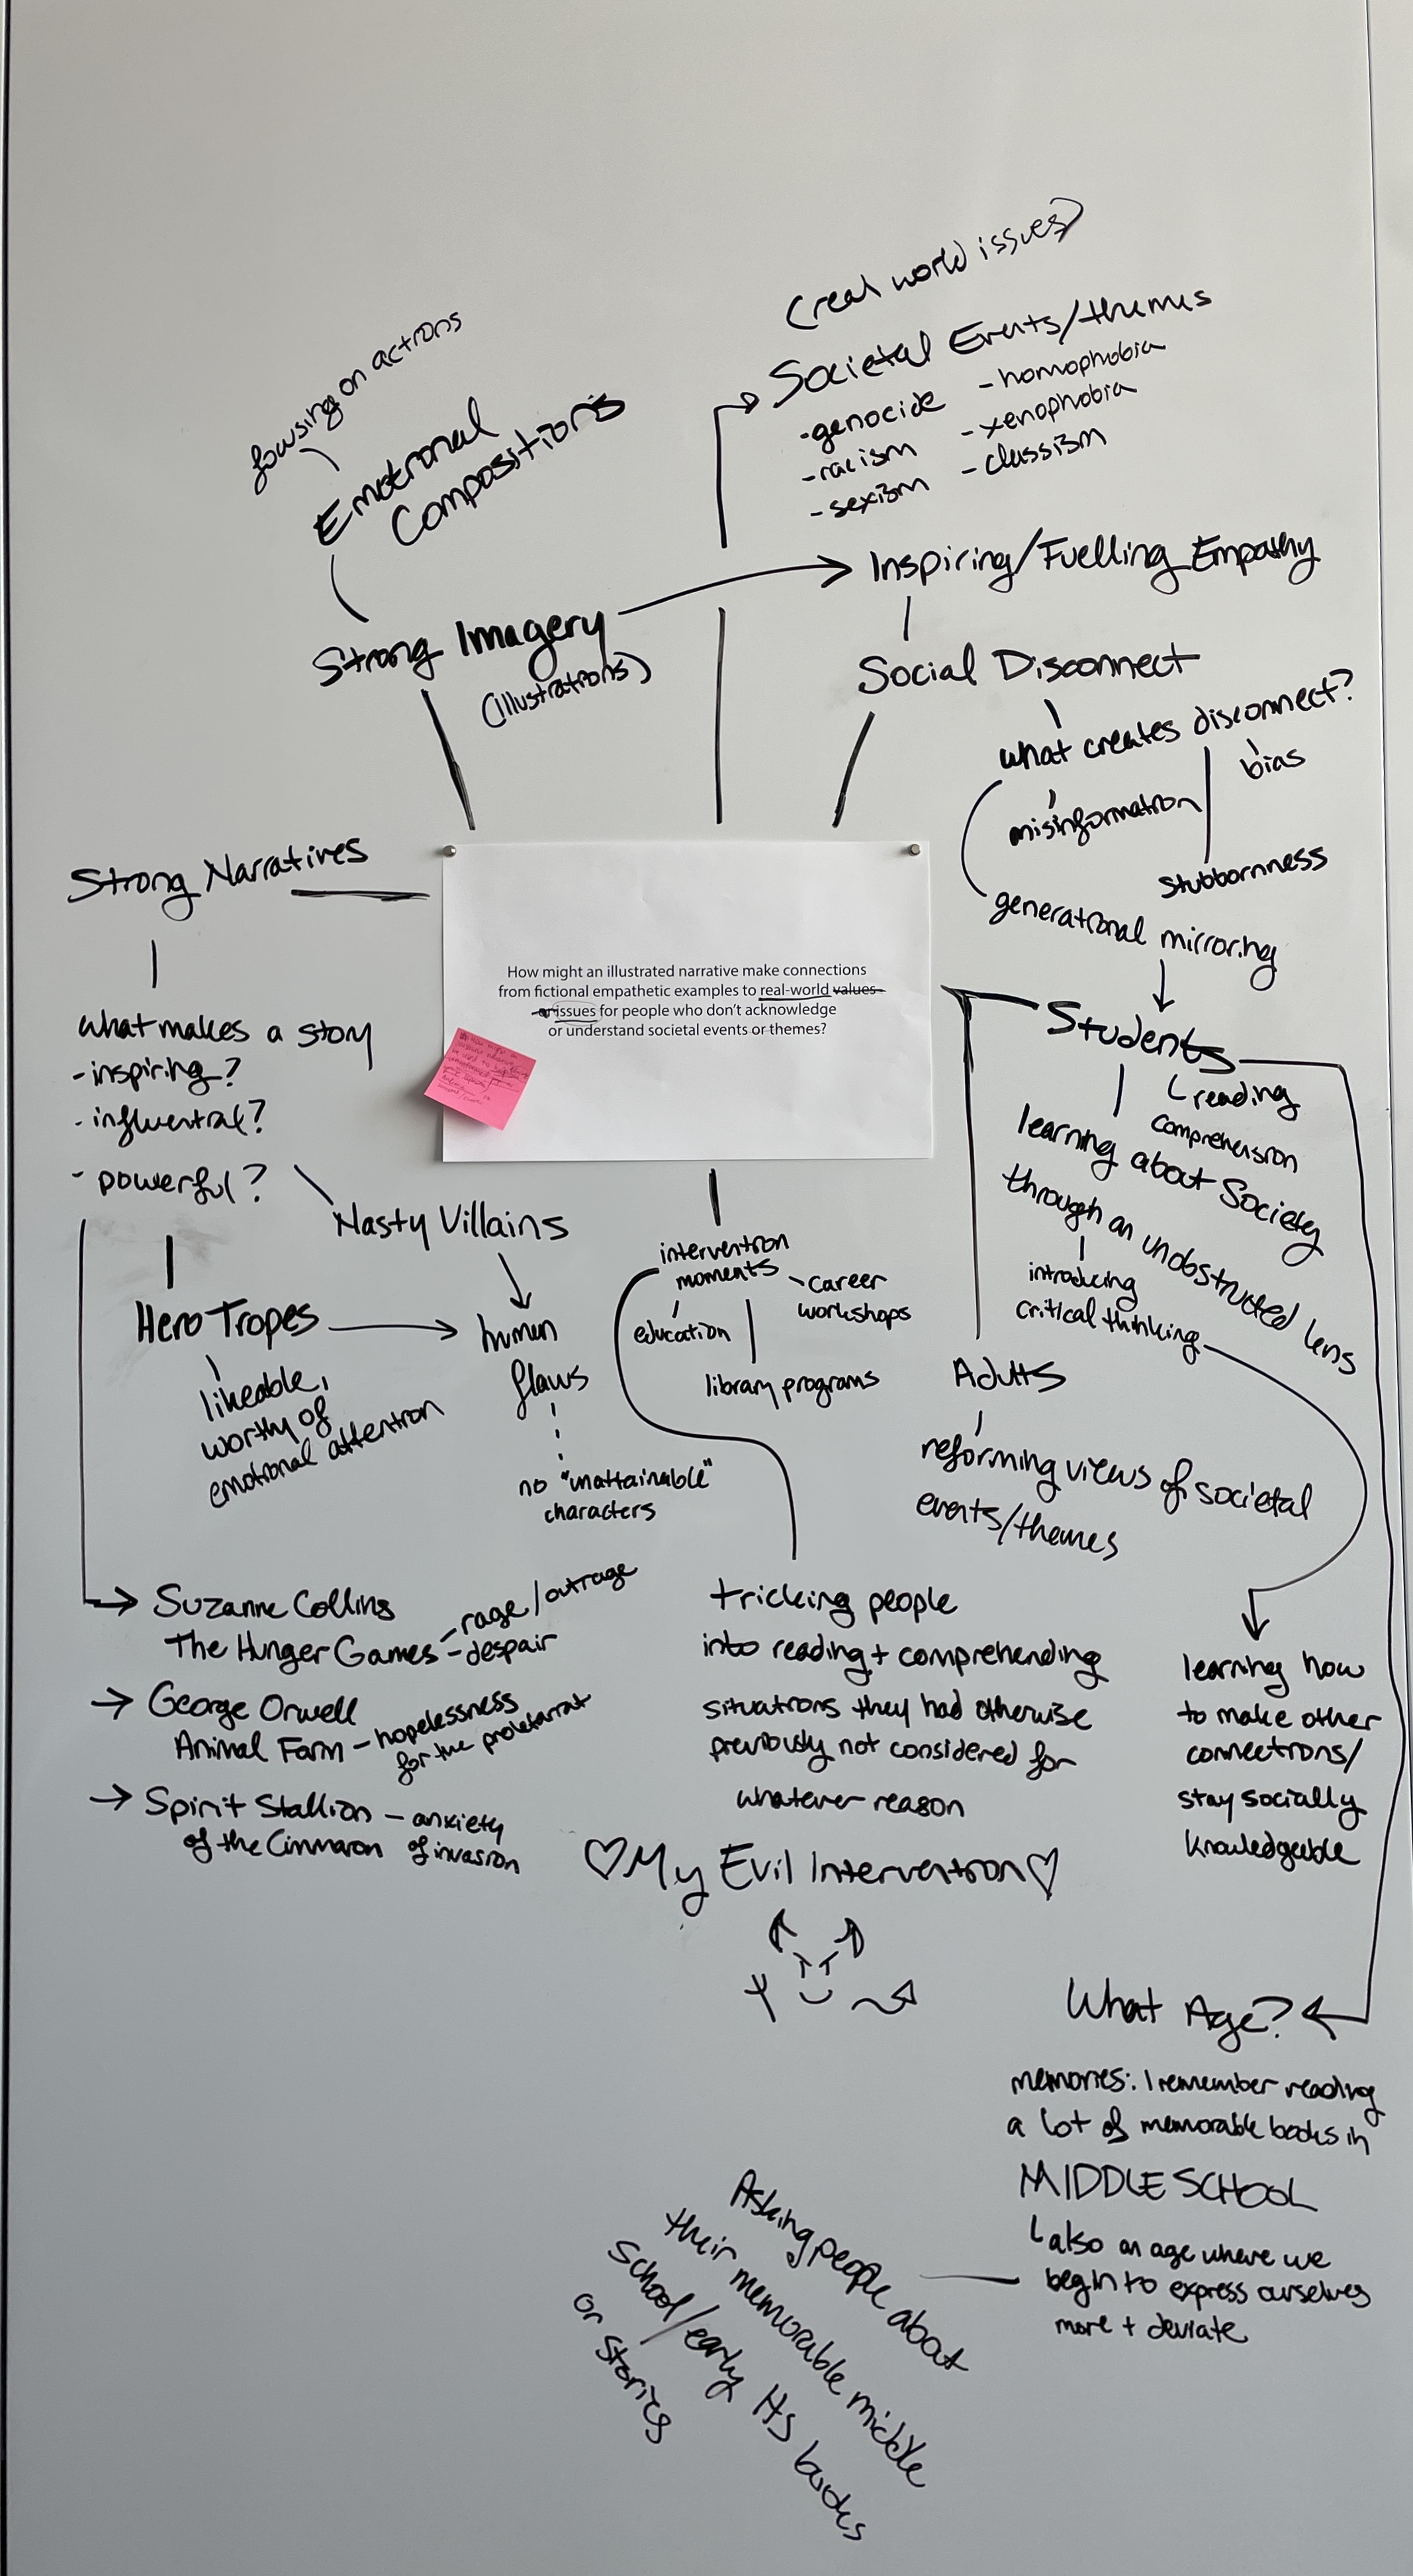 (real world issues)
Societal Events/themes
-genocide
-racism
-sexism
-homophobia
-xenophobia
-classism
focusing on actions
Emotional
Compositions
Strong Imagery
(illustrations)
Inspiring/Fuelling Empathy
Social Disconnect
what creates disconnect?
bias
misinformation
stubbornness
generational mirroring
Strong Narratives
what makes a story
-inspiring?
-influential?
- powerful?
How might an illustrated narrative make connections
from fictional empathetic examples to real-world values
or issues for people who don't acknowledge
or understand societal events or themes?
Students
reading
comprehension
learning about Society
through an unobstructed lens
introducing
critical thinking
Nasty Villains
Hero Tropes
likeable,
worthy of
emotional attention
human
flaws
no "unattainable"
characters
intervention
moments
career
workshops
education
library programs
Adults
reforming views of societal
events/themes
Suzanne Collins
The Hunger Games - rage/outrage
- despair
George Orwell
Animal Farm - hopelessness
for the proletariat
Spirit Stallion - anxiety
of the Cimmaron of invasion
tricking people
into reading + comprehending
situations they had otherwise
previously not considered for
whatever reason
♡My Evil Intervention♡
learning how
to make other
connections/
stay socially
knowledgeable
What Age?
memories: I remember reading
a lot of memorable books in
MIDDLE SCHOOL
also an age where we
begin to express ourselves
more + deviate
Asking people about
their memorable middle
school/early HS books
or stories